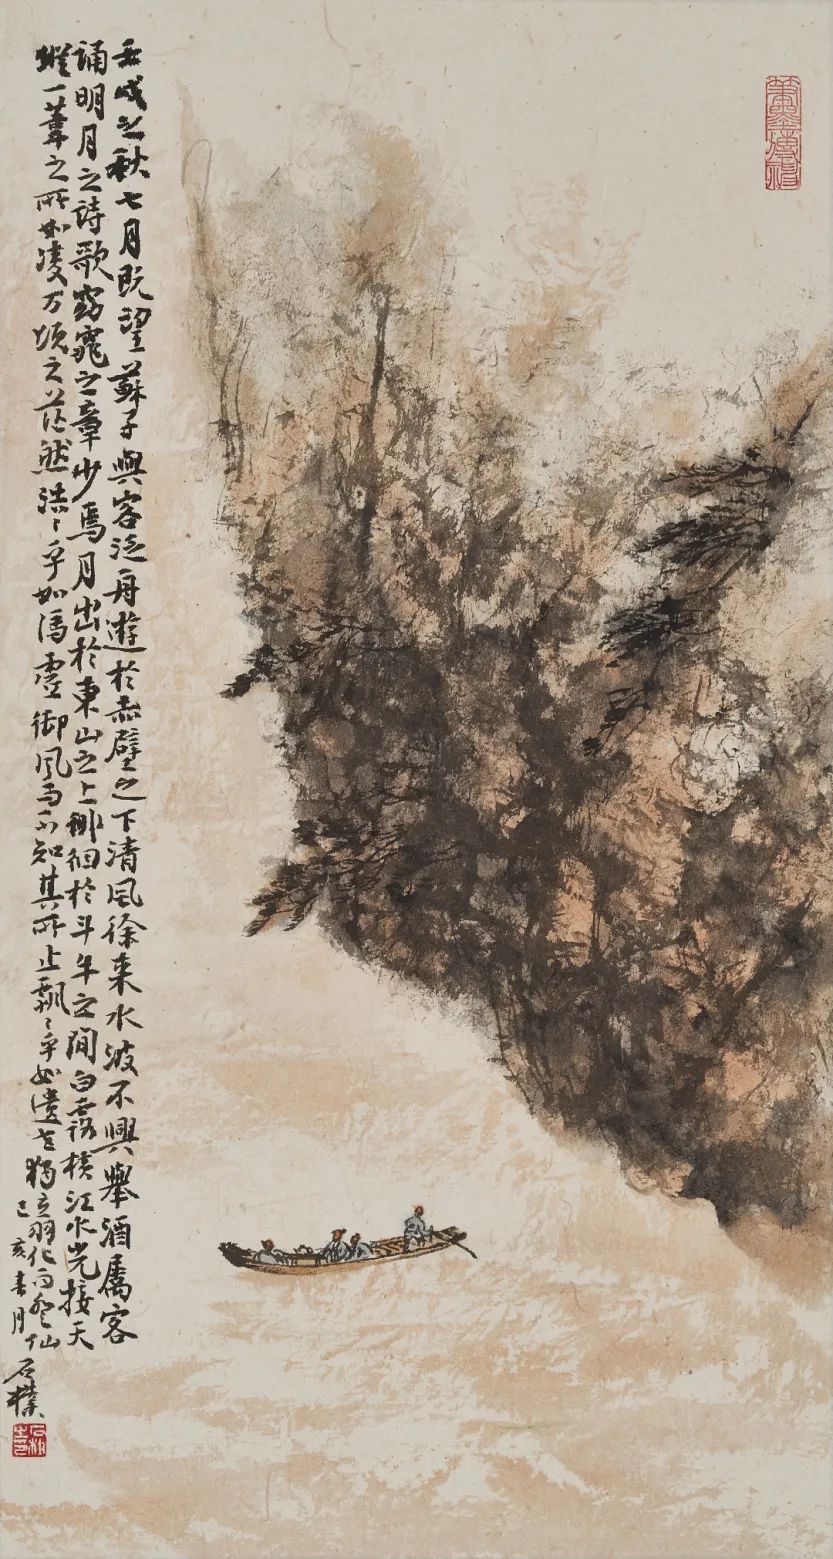 壬戌之秋七月既望蘇子與客泛舟遊於赤壁之下清風徐来水波不興舉酒屬客
誦明月之詩歌窈窕之章少焉月出於東山之上徘徊於斗牛之間白露横江水光接天
縱一葦之所如凌万頃之茫然浩〻乎如馮虛御風而不知其所止飄〻乎如遺世獨立羽化而登仙
己亥春月
石樸